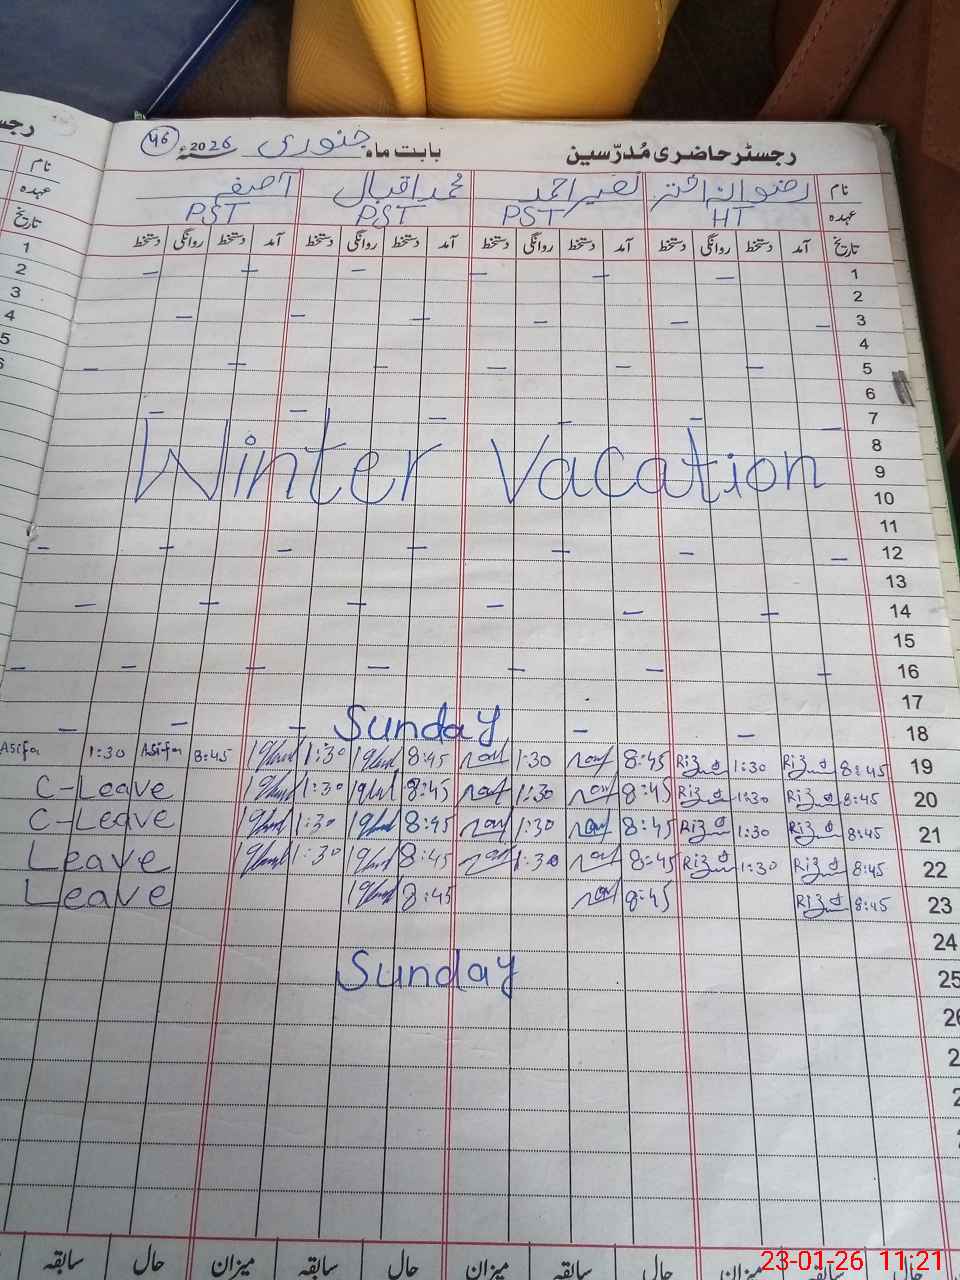 رجسٹر حاضری مُدرّسین بابت ماہ جنوری 2026ء 46
نام رضوان اختر نصیر احمد محمد اقبال آصفہ نام
عہدہ HT PST PST PST عہدہ
تاریخ آمد دستخط روانگی دستخط آمد دستخط روانگی دستخط آمد دستخط روانگی دستخط آمد دستخط روانگی دستخط تاریخ
1 1
2 2
3 3
4 4
5 5
6
7
8
Winter Vacation 9
10
11
12
13
14
15
16
17
Sunday 18
Asifa 1:30 Asifa 8:45 1:30 8:45 1:30 8:45 1:30 8:45 19
C-Leave 1:30 8:45 1:30 8:45 1:30 8:45 20
C-Leave 1:30 8:45 1:30 8:45 1:30 8:45 21
Leave 1:30 8:45 1:30 8:45 1:30 8:45 22
Leave 8:45 8:45 8:45 23
24
Sunday 25
26
سابقہ حال میزان سابقہ حال میزان سابقہ حال میزان سابقہ حال
23-01-26 11:21